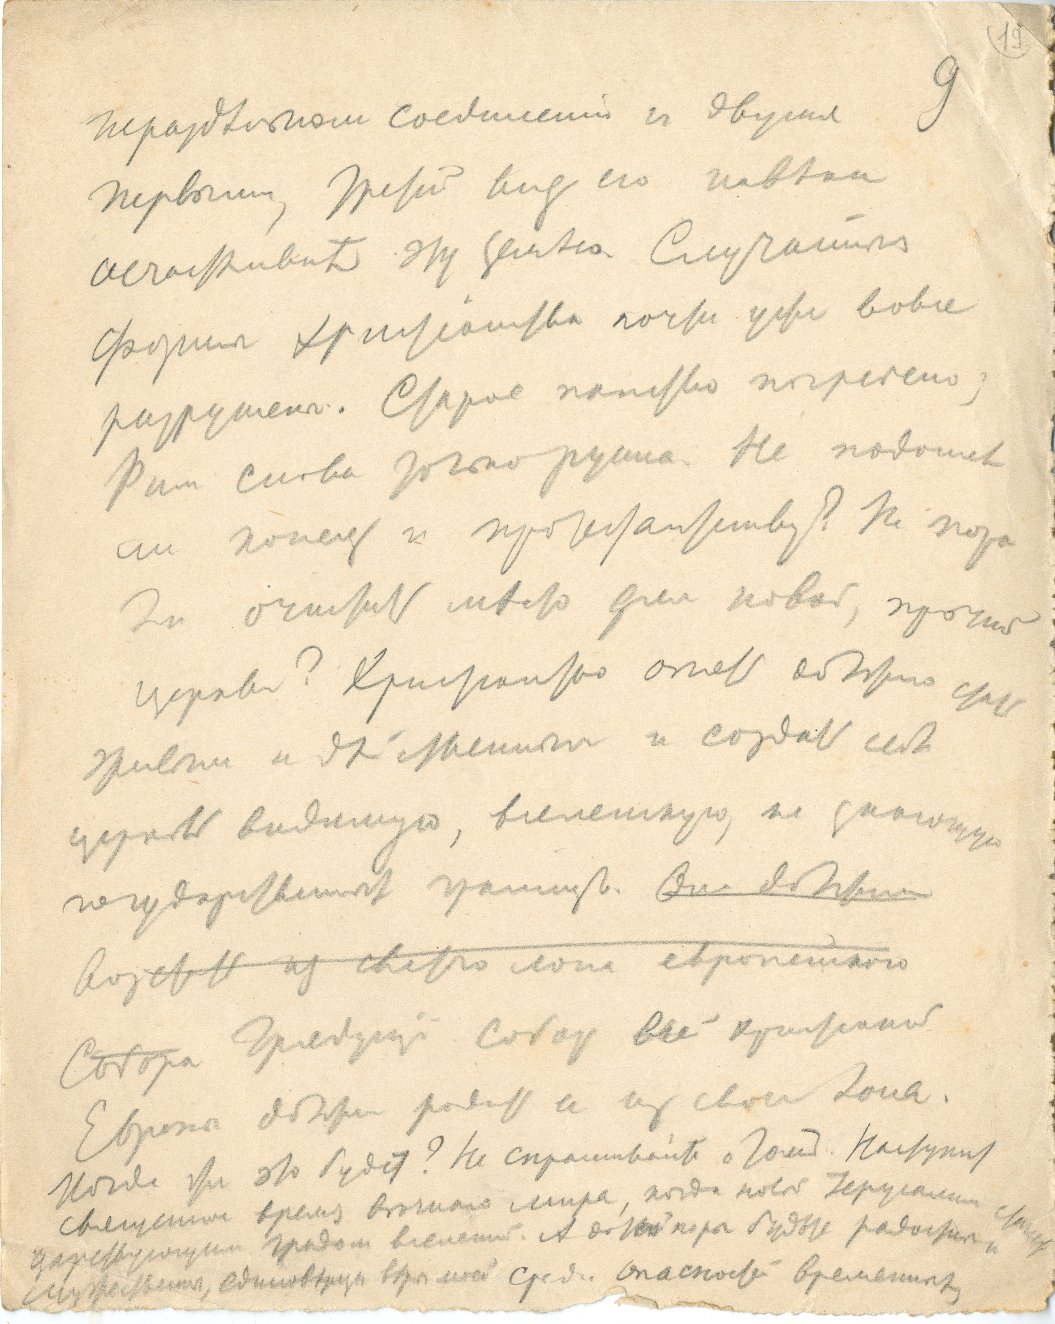 19
9
нераздѣльном соединении с двумя
первыми, Третий вид его навѣки
осчастливитъ эту землю. Случайныя
формы Христіанства почти уже вовсе
разрушены. Старое папство погребено;
Рим снова только руина. Не подошел
ли конец и протестантству? Не пора
ли очистить мѣсто для новой, прочной
церкви? Христианство опять должно стать
живым и дѣйственным и создать себѣ
церковь видимую, вселенскую, не знающую
государственных границъ. Она должна
возстать из святого лона европейского
Собора Грядущій собор всей христианской
Европы должен родить ее из своего лона.
Когда же это будет? Не спрашивайте о том. Наступит
священное время вѣчнаго мира, когда новой Іерусалим станет
царствующим градом вселенной. А до той поры будьте радостны и
мужественны, единовѣрцы вѣры моей среди опасностей временных,